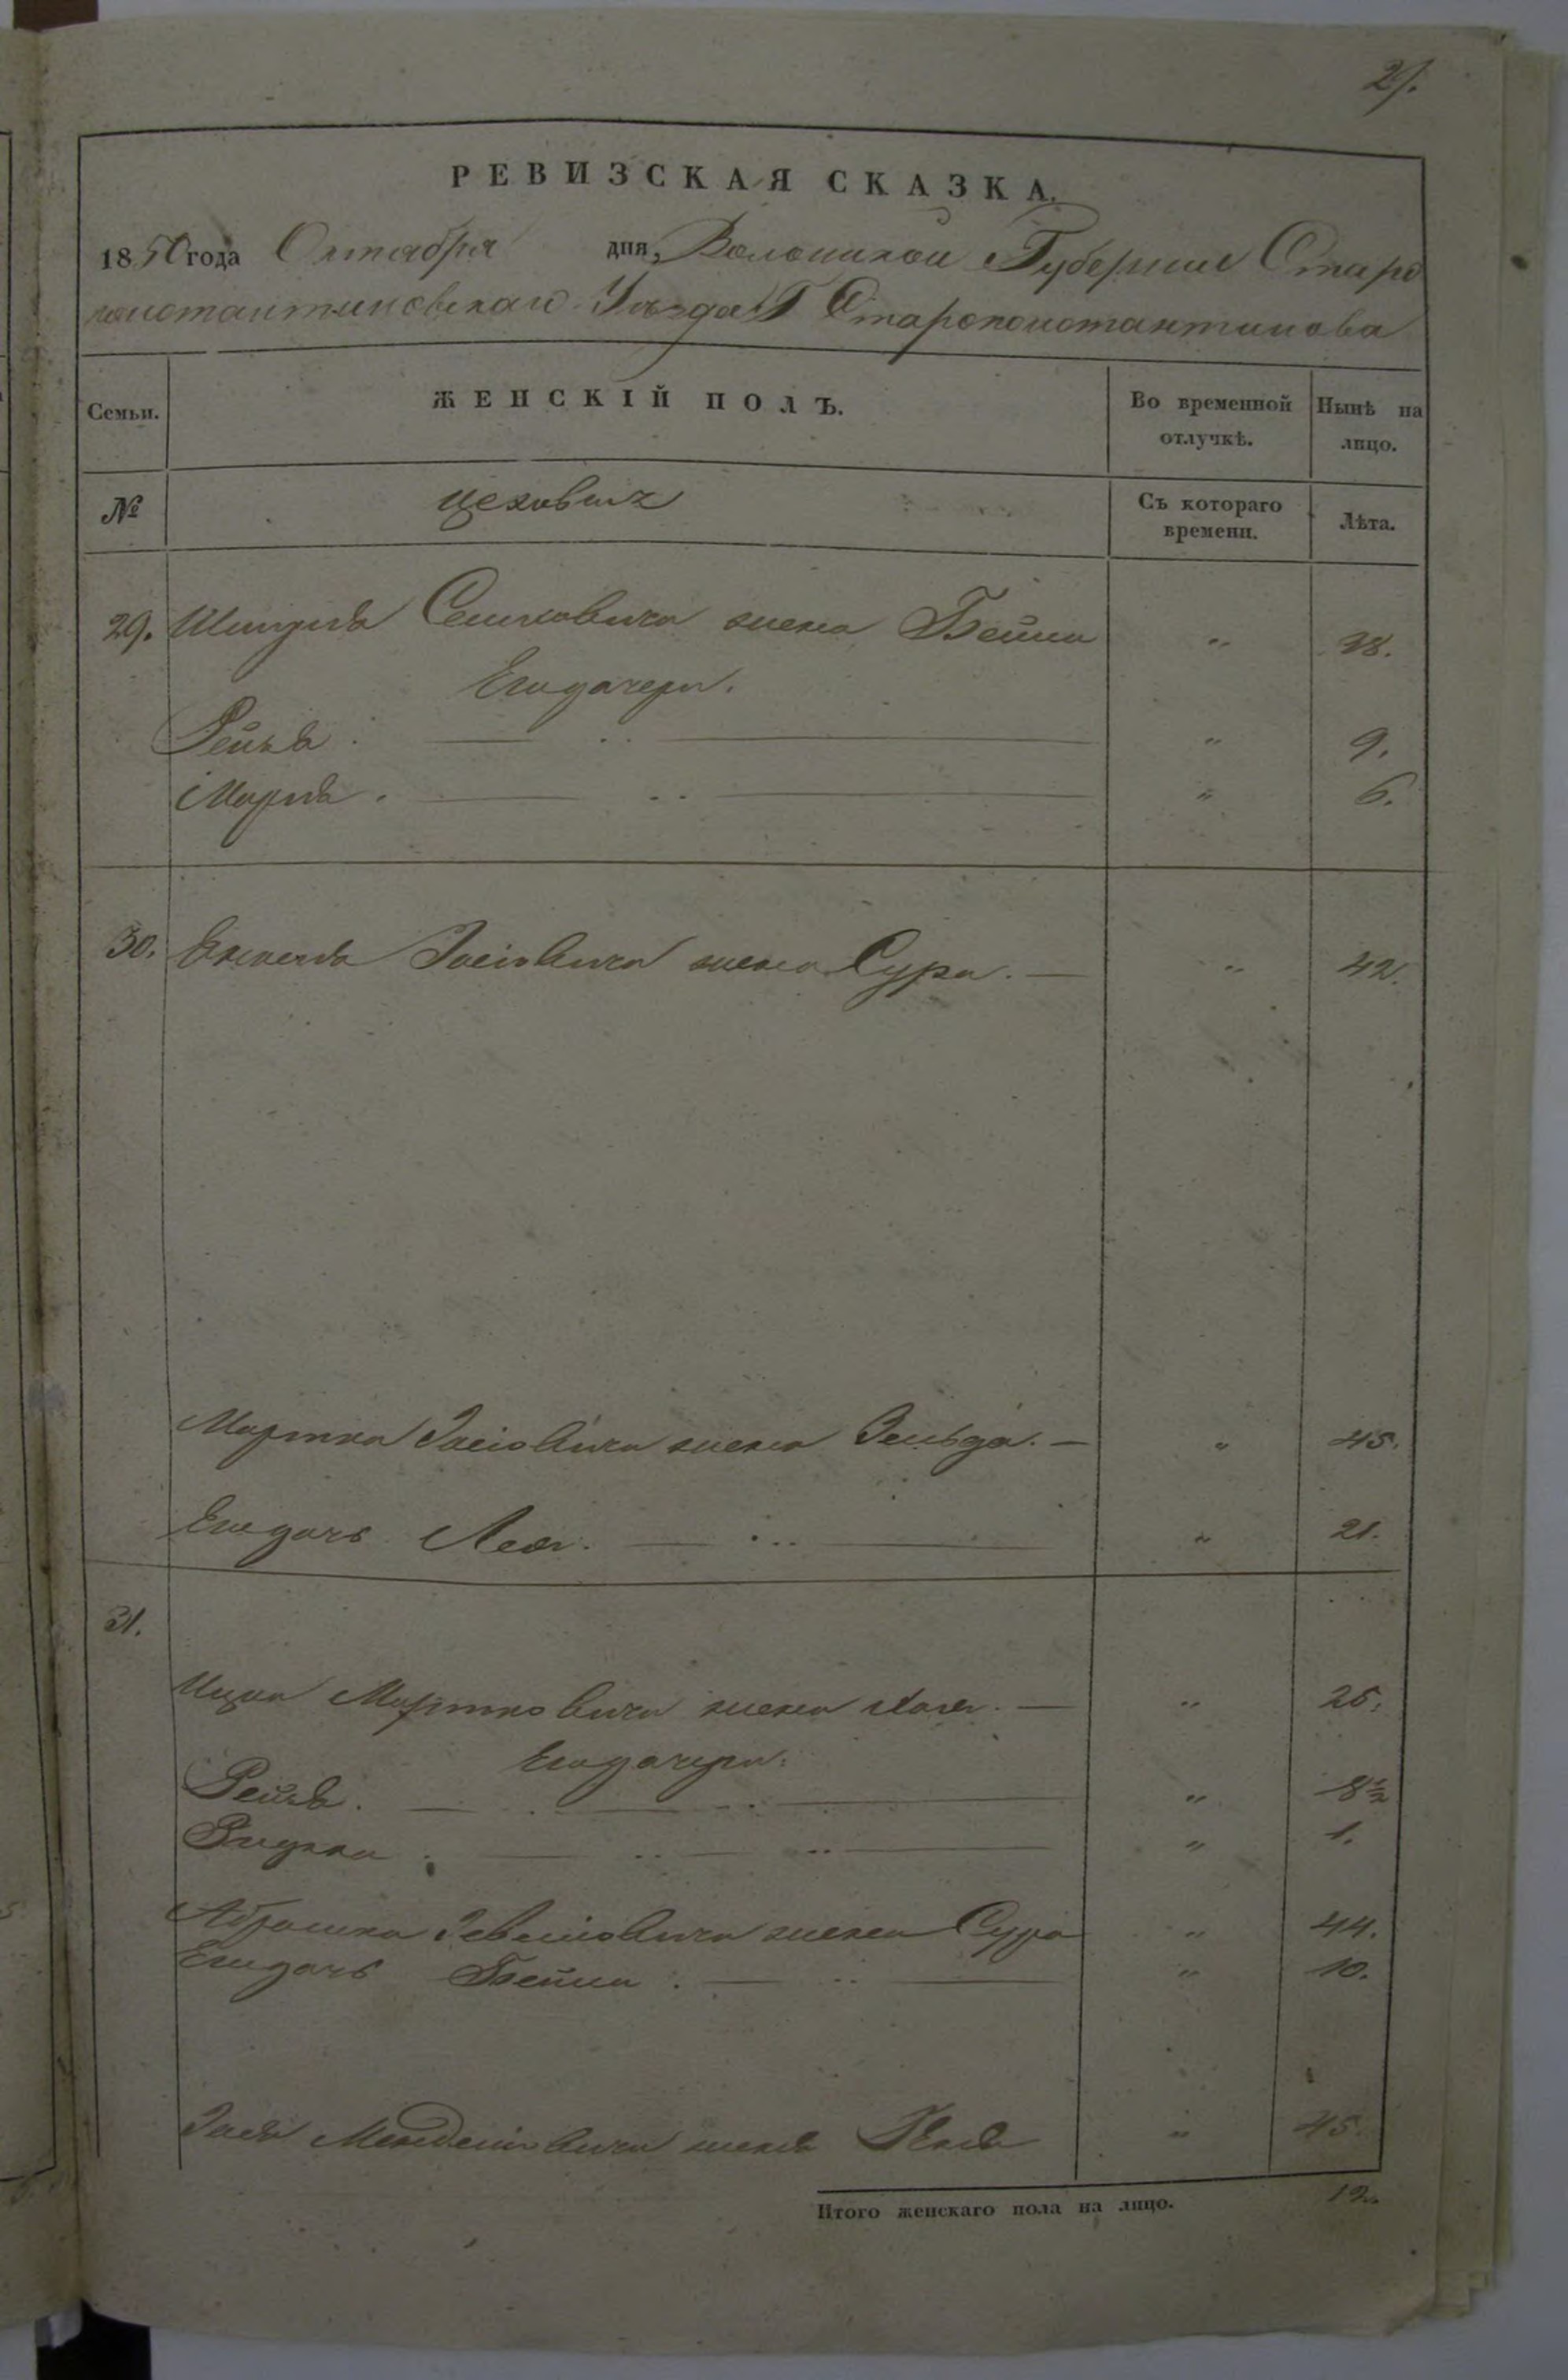 27.
РЕВИЗСКАЯ СКАЗКА.
1850 года Октября дня, Волынской Губернии Старо
константиновскаго Уѣзда Г Староконстантинова
Семьи. ЖЕНСКІЙ ПОЛЪ. Во временной отлучкѣ. Нынѣ на лицо.
№ цеховыхъ Съ котораго времени. Лѣта.
29. Семковича жена Бейла " 38.
Его дочери.
Рейзя. " 9.
Марія. " 6.
30. Іосіовича жена Сура. " 42.
Мортка Іосіовича жена Зельда. " 45.
Его дочь Лея. " 21.
31.
Ицка Мортковича жена Хая. " 25.
Его дочери.
Рейзя. " 8½
" 1.
Абрамка жена Сура " 44.
Его дочь Бейла. " 10.
жена " 45.
Итого женскаго пола на лицо. 12.